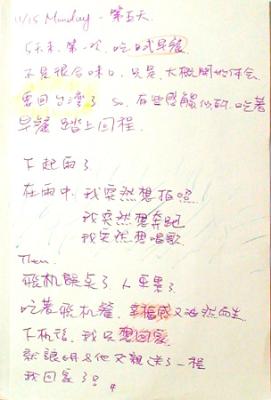 11/15 Monday - 第五天
5天來,第一次,吃日式早餐
不是很合味口,只是,大概開始体会
要回台灣了 so,有些感觸似的,吃著
早餐 踏上回程.
下起雨了
在雨中,我突然想拍照
我突然想奔跑
我突然想唱歌
Then
飛机誤点了 人更累了
吃著飛机餐,幸福感又油然而生
下机後,我只想回家
就讓明&他又親送了一程
我回家了!